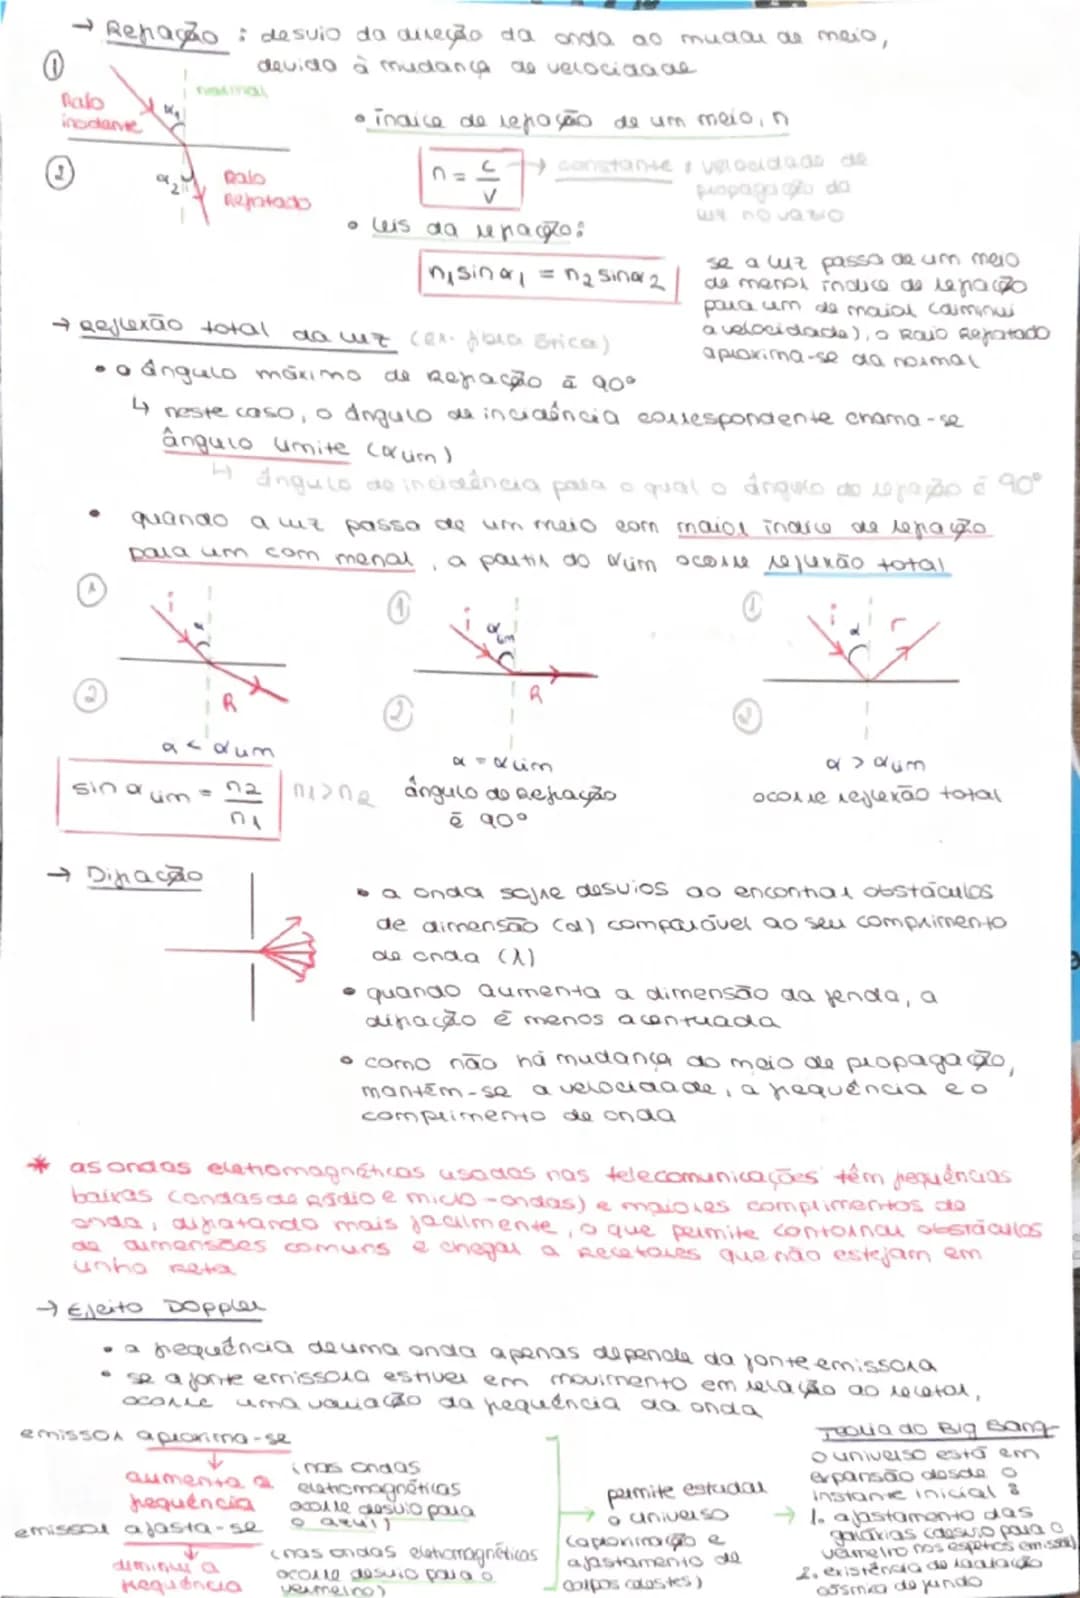 → Refração : desvio da direção da onda ao mudar de meio,
devido à mudança de velocidade
①
normal
Raio
incidente
α1
②
α2
Raio
Refratado
• índice de refração de um meio, n
n = c/v → constante, velocidade de
propagação da
luz no vazio
• leis da refração:
n1 sin α1 = n2 sin α2
se a luz passa de um meio
de menor índice de refração
para um de maior (diminui
a velocidade), o Raio Refratado
aproxima-se da normal
→ Reflexão total da luz (ex. fibra ótica)
• o ângulo máximo de Refração é 90°
↳ neste caso, o ângulo de incidência correspondente chama-se
ângulo limite (α lim)
↳ ângulo de incidência para o qual o ângulo de refração é 90°
• quando a luz passa de um meio com maior índice de refração
para um com menor, a partir do αlim ocorre reflexão total
① i α
② R
α < αlim
① i αlim
② R
α = αlim
ângulo de Refração
é 90°
① i α r
②
α > αlim
ocorre reflexão total
sin α lim = n2/n1
n1>n2
→ Difração
• a onda sofre desvios ao encontrar obstáculos
de dimensão (d) comparável ao seu comprimento
de onda (λ)
• quando aumenta a dimensão da fenda, a
difração é menos acentuada
• como não há mudança do meio de propagação,
mantêm-se a velocidade, a frequência e o
comprimento de onda
* as ondas eletromagnéticas usadas nas telecomunicações têm frequências
baixas (ondas de Rádio e micro-ondas) e maiores comprimentos de
onda, difratando mais facilmente, o que permite contornar obstáculos
de dimensões comuns e chegar a Recetores que não estejam em
linha reta
→ Efeito Doppler
• a frequência de uma onda apenas depende da fonte emissora
• se a fonte emissora estiver em movimento em relação ao recetor,
ocorre uma variação da frequência da onda
emissor aproxima-se
↓
aumenta a
frequência
(nas ondas
eletromagnéticas
ocorre desvio para
o azul)
emissor afasta-se
↓
diminui a
frequência
(nas ondas eletromagnéticas
ocorre desvio para o
vermelho)
→ permite estudar
o universo
(aproximação e
afastamento de
corpos celestes)
Teoria do Big Bang
O universo está em
expansão desde o
instante inicial :
→ 1. afastamento das
galáxias (desvio para o
vermelho nos espetros emissão)
2. existência de radiação
cósmica de fundo